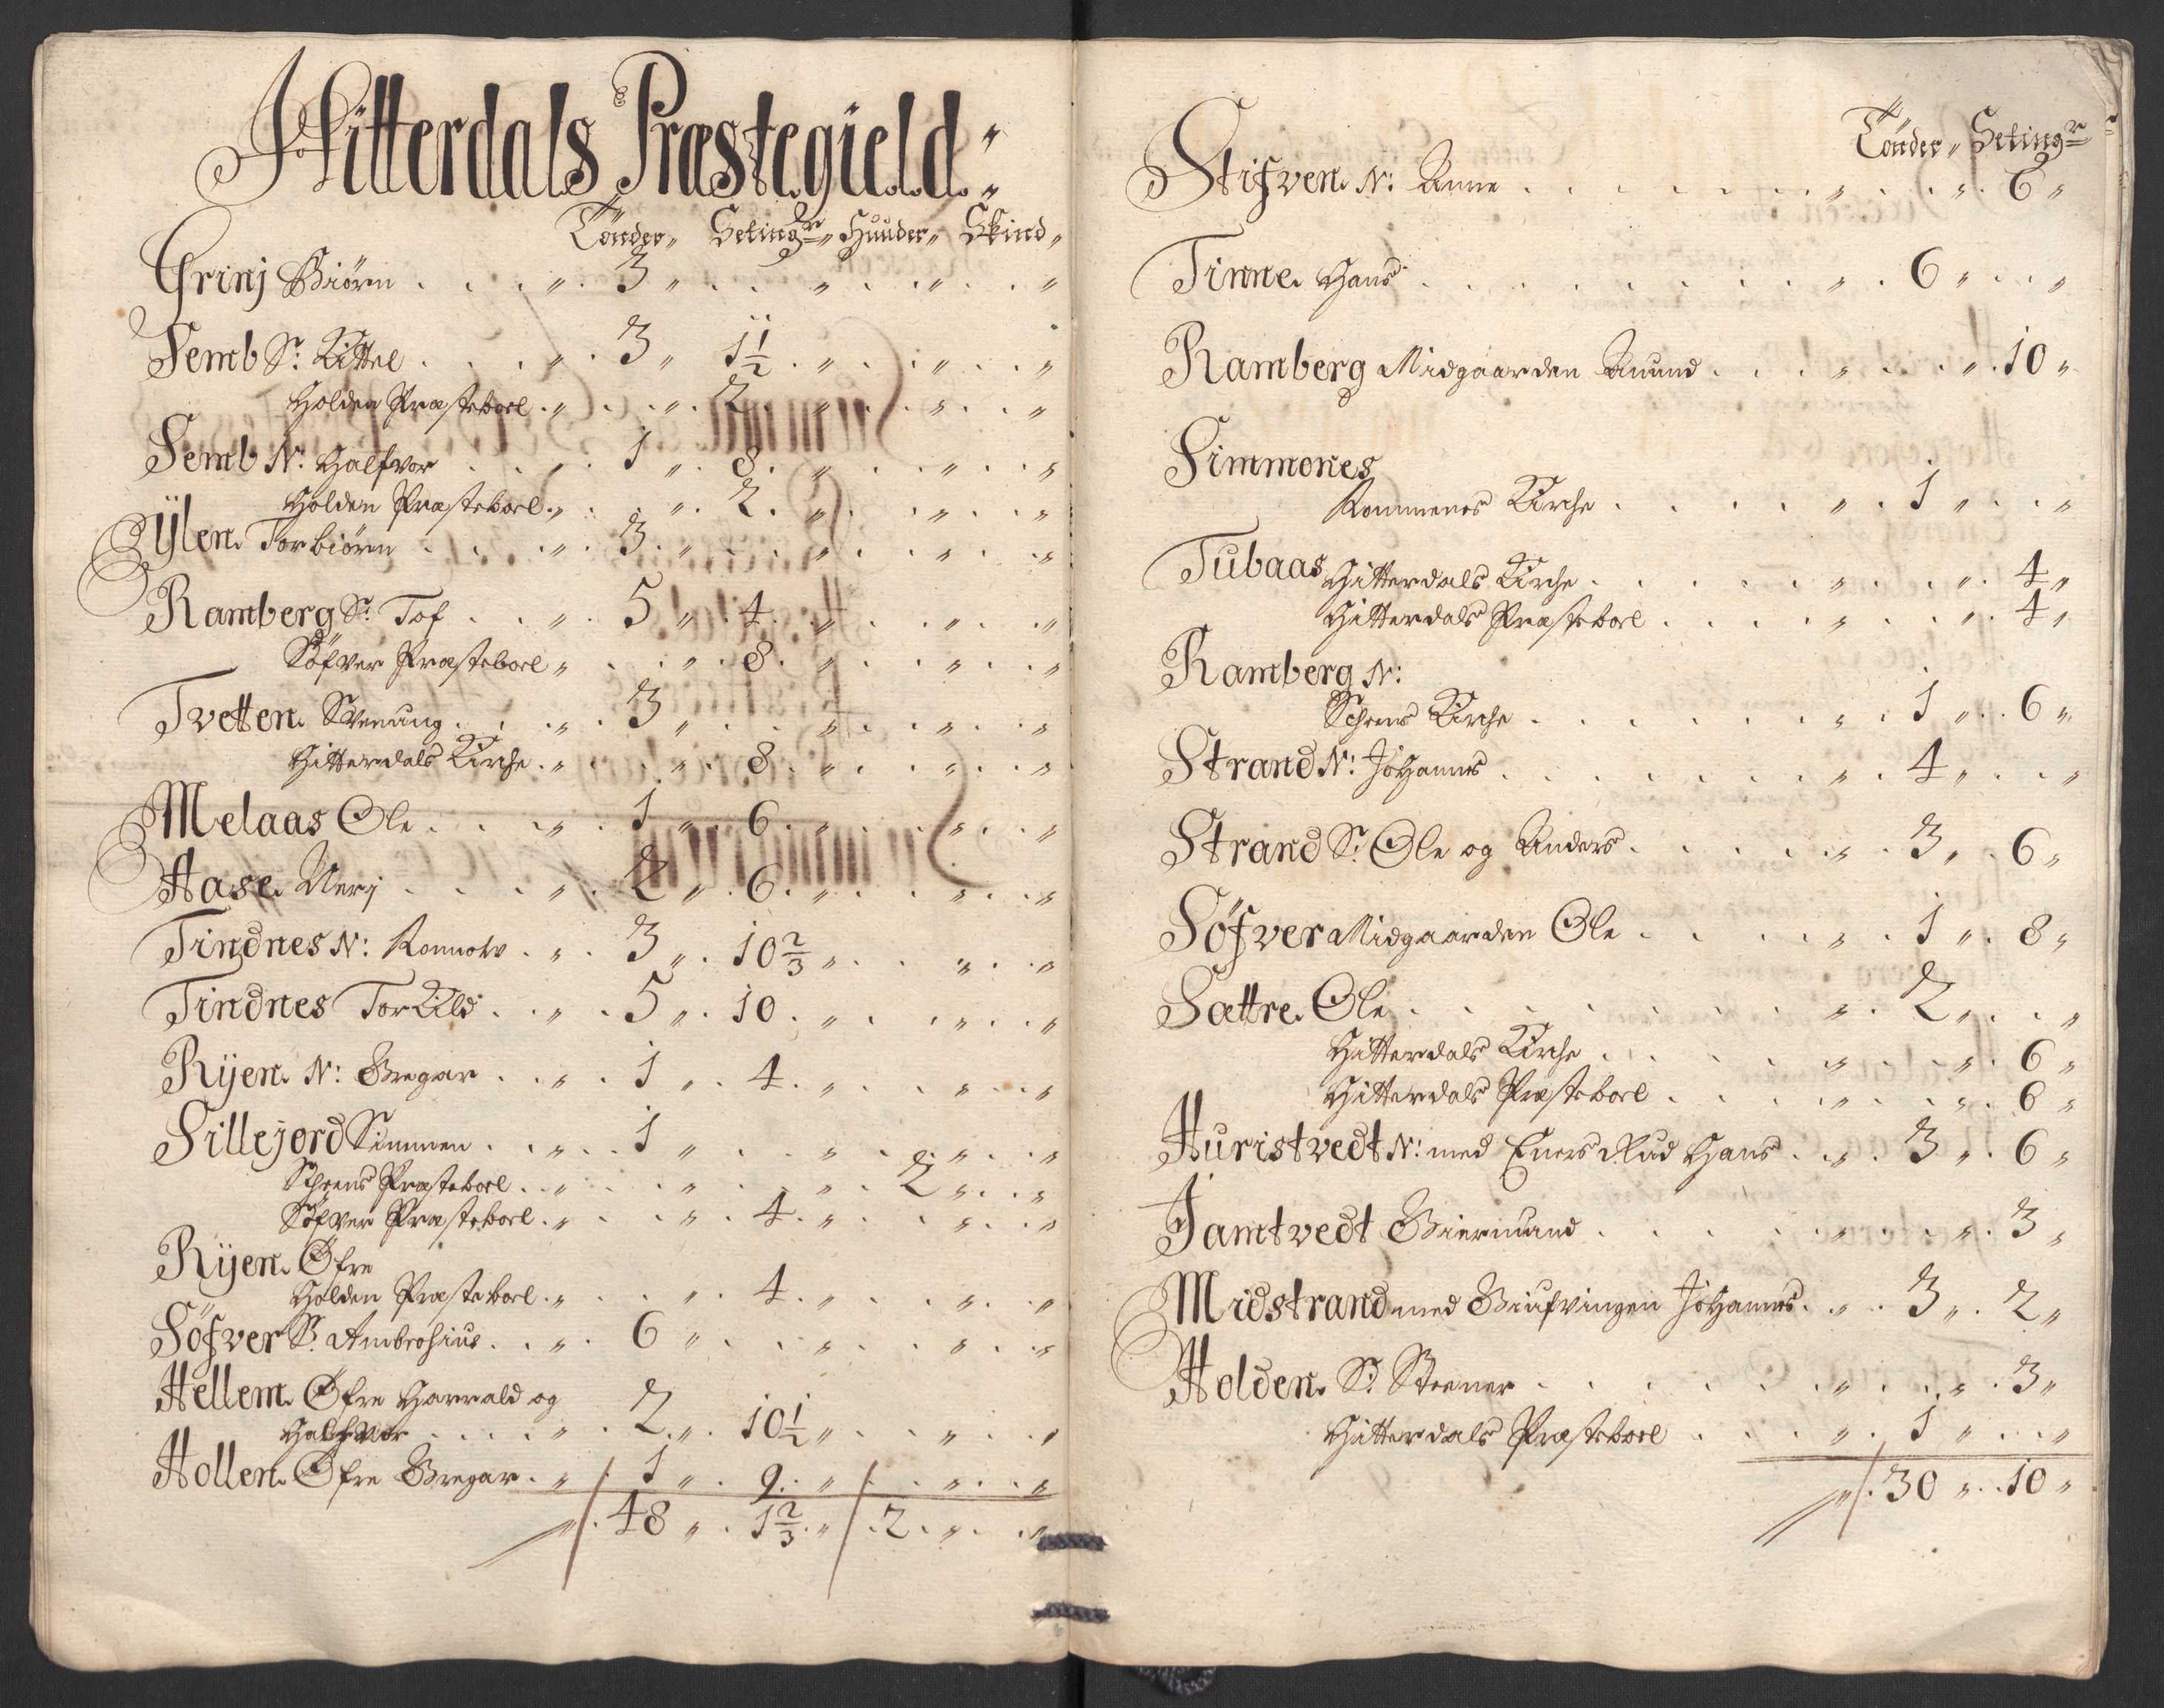 Hitterdals Præstegield
Tönder„ Setingr„ Huuder„ Skind„
Grinj Biörn . . . „ . 3 „ . . „ . . „ . . „
Semb S: Kittel . . . „ . 3 „ 1 1/2 . „ . . „ . . „
Holden Præsteboel . „ . . „ . 2 . „ . . „ . . „
Semb N: Halfvor . . . „ . 1 „ . 8 . „ . . „ . . „
Holden Præsteboel . „ . . „ . 2 . „ . . „ . . „
Ÿlen Torbiörn . . . „ . 3 . „ . . „ . . „ . . „
Ramberg S: Tof . . „ . 5 „ . 4 . „ . . „ . . „
Söfver Præsteboel „ . . „ . 8 . „ . . „ . . „
Tvetten Svenung . . . „ . 3 „ . . „ . . „ . . „
Hitterdals Kirche . „ . . „ . 8 . „ . . „ . . „
Melaas Ole . . . „ . 1 „ . 6 . „ . . „ . . „
Hase Nerj . . . „ . 2 „ . 6 . „ . . „ . . „
Tindnes N: Ronnow . . „ . 3 „ . 10 2/3 „ . . „ . . „
Tindnes Torkild . . „ . 5 „ . 10 . „ . . „ . . „
Rÿen N: Gregar . . „ . 1 „ . 4 . „ . . „ . . „
Sillejord Simmen . . „ . 1 „ . . „ . . „ . . „
Schiens Præsteboel . „ . . „ . . „ . 2 „ . . „
Söfver Præsteboel . „ . . „ . 4 . „ . . „ . . „
Rÿen Øfre
Holden Præsteboel . „ . . „ . 4 . „ . . „ . . „
Söfver S: Ambrosius . . „ . 6 „ . . „ . . „ . . „
Hellem Øfre Harrald og
Halfvor . . . . „ . 2 „ . 10 1/2 „ . . „ . . „
Hollen Øfre Gregar . „ . 1 „ . 9 . „ . . „ . . „
„ . 48 „ . 1 2/3 . „ . 2 . „ . . „
Tönder„ Setingr
Stifven N: Anne . . . . . „ . . „ . 6 „
Tinne Hans . . . . . „ . 6 „ . . „
Ramberg Midgaarden Anund . . . „ . . „ . 10 „
Simmones
Rommenes Kirche . . . . „ . 1 „ . . „
Tubaas Hitterdals Kirche . . . . „ . . „ . 4 „
Hitterdals Præsteboel . . . . „ . . „ . 4 „
Ramberg N:
Schiens Kirche . . . . „ . 1 „ . 6 „
Strand N: Johannes . . . . „ . 4 „ . . „
Strand S: Ole og Anders . . . . „ . 3 „ . 6 „
Söfver Midgaarden Ole . . . . „ . 1 „ . 8 „
Sættre Ole . . . . „ . 2 „ . . „
Hitterdals Kirche . . . . „ . . „ . 6 „
Hitterdals Præsteboel . . . . „ . . „ . 6 „
Huristvedt N: med Eners Rud Hans . . „ . 3 „ . 6 „
Jamtvedt Giermund . . . . „ . . „ . 3 „
Midstrand med Johannes . . „ . 3 „ . 2 „
Holden S: Steener . . . . „ . . „ . 3 „
Hitterdals Præsteboel . . . „ . 1 „ . . „
„ . 30 „ . . 10 „